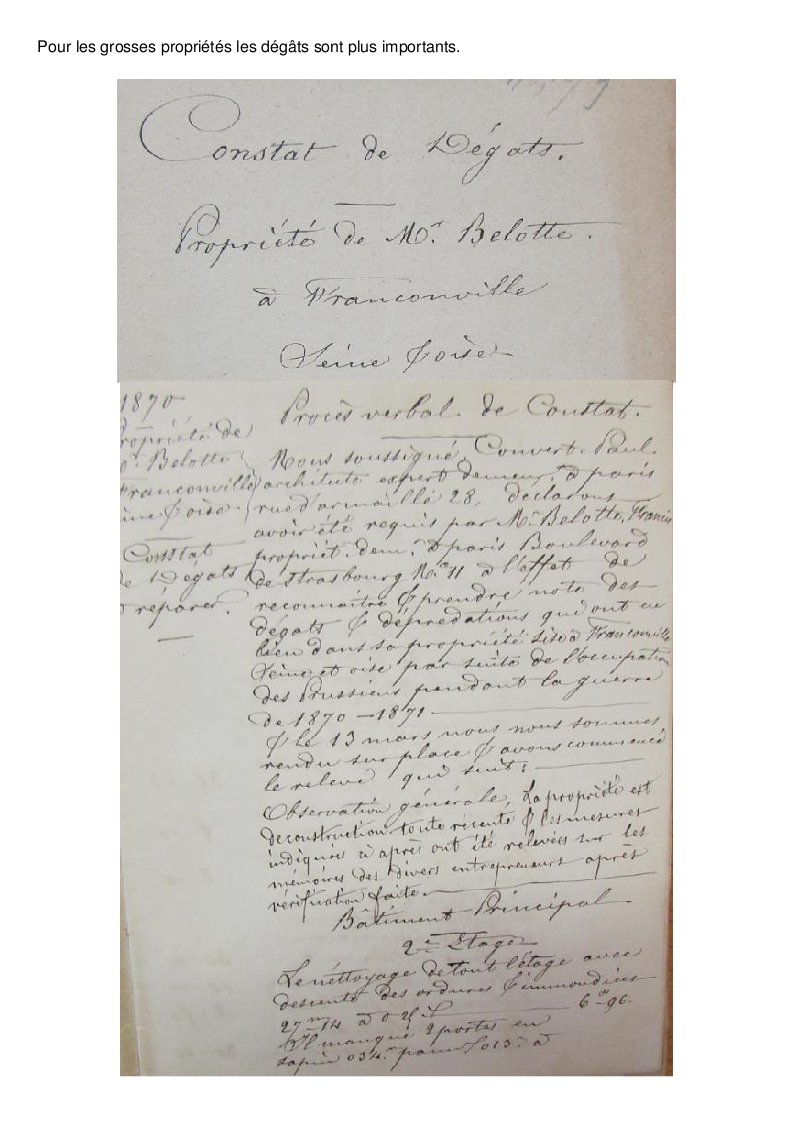 Pour les grosses propriétés les dégâts sont plus importants.
Constat de Dégats.
Propriété de Mr. Belotte.
à Franconville
Seine & oise
1870
Propriété de
Mr. Belotte
Franconville
Seine & oise
Constat
de Dégats
à réparer.
Procès verbal de Constat.
Nous soussigné, Convert Paul
architecte expert demeurt. à paris
rue d'armaillé 28, déclarons
avoir été requis par Mr. Belotte, Francis
propriét. demt. à paris Boulevard
de Strasbourg No. 11 à l'effet de
reconnaître & prendre note des
dégats & dépredations qui ont eu
lieu dans sa propriété sise à Franconville
Seine et oise par suite de l'occupation
des Prussiens pendant la guerre
de 1870 - 1871
& le 13 mars nous nous sommes
rendu sur place & avons commencé
le relevé qui suit:
Observation générale, La propriété est
de construction toute récente & les mesures
indiquées ci après ont été relevées sur les
mémoires des divers entrepreneurs après
vérification faite.
Bâtiment Principal
2e Etage
Le nettoyage de tout l'étage avec
descente des ordures & immondices
27m 14 à 0 6f 96
Il manque 2 portes en
sapin 034 013 à